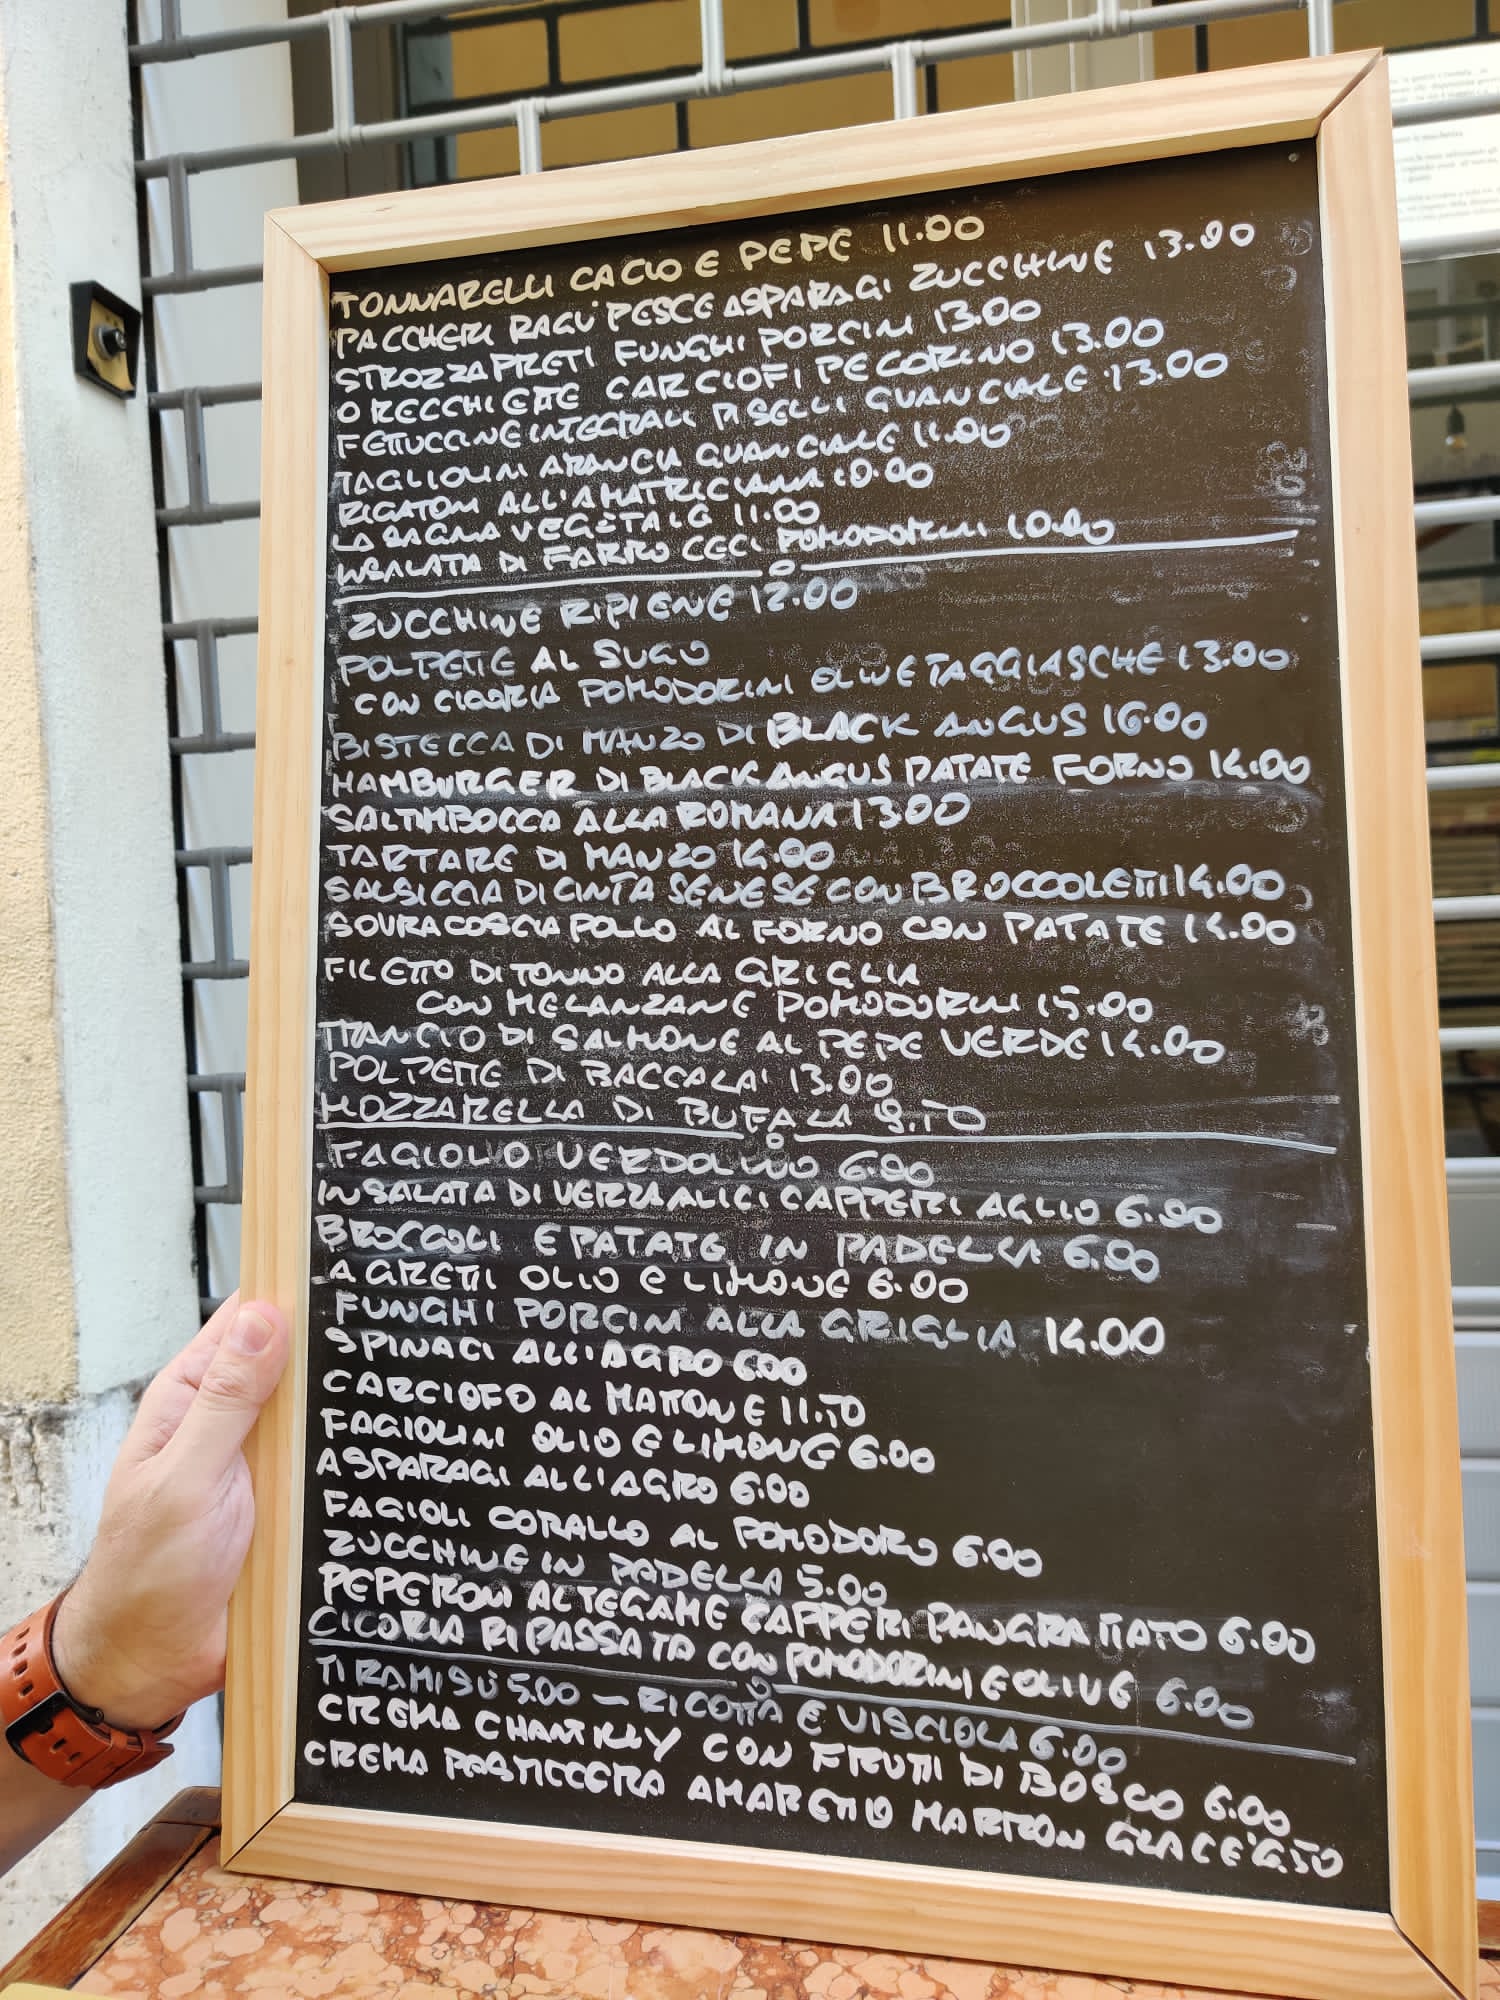 TONNARELLI CACIO E PEPE 11.00
PACCHERI RAGU' PESCE ASPARAGI ZUCCHINE 13.00
STROZZAPRETI FUNGHI PORCINI 13.00
ORECCHIETTE CARCIOFI PECORINO 13.00
FETTUCCINE INTEGRALI PISELLI GUANCIALE 13.00
TAGLIOLINI ARANCIA GUANCIALE 11.00
RIGATONI ALL'AMATRICIANA 10.00
LASAGNA VEGETALE 11.00
INSALATA DI FARRO CECI POMODORINI 10.00
ZUCCHINE RIPIENE 12.00
POLPETTE AL SUGO
CON CICORIA POMODORINI OLIVE TAGGIASCHE 13.00
BISTECCA DI MANZO DI BLACK ANGUS 16.00
HAMBURGER DI BLACK ANGUS PATATE FORNO 14.00
SALTIMBOCCA ALLA ROMANA 13.00
TARTARE DI MANZO 14.00
SALSICCIA DI CINTA SENESE CON BROCCOLETTI 14.00
SOVRACOSCIA POLLO AL FORNO CON PATATE 14.00
FILETTO DI TONNO ALLA GRIGLIA
CON MELANZANE POMODORINI 15.00
TRANCIO DI SALMONE AL PEPE VERDE 14.00
POLPETTE DI BACCALA' 13.00
MOZZARELLA DI BUFALA 9.50
FAGIOLO VERDOLINO 6.00
INSALATA DI VERZA ALICI CAPPERI AGLIO 6.00
BROCCOLI E PATATE IN PADELLA 6.00
AGRETTI OLIO E LIMONE 6.00
FUNGHI PORCINI ALLA GRIGLIA 14.00
SPINACI ALL'AGRO 6.00
CARCIOFO AL MATTONE 11.50
FAGIOLINI OLIO E LIMONE 6.00
ASPARAGI ALL'AGRO 6.00
FAGIOLI CORALLO AL POMODORO 6.00
ZUCCHINE IN PADELLA 5.00
PEPERONI AL TEGAME CAPPERI PANGRATTATO 6.00
CICORIA RIPASSATA CON POMODORINI E OLIVE 6.00
TIRAMISÙ 5.00 — RICOTTA E VISCIOLA 6.00
CREMA CHANTILLY CON FRUTTI DI BOSCO 6.00
CREMA PASTICCERA AMARETTO MARRON GLACE' 6.50